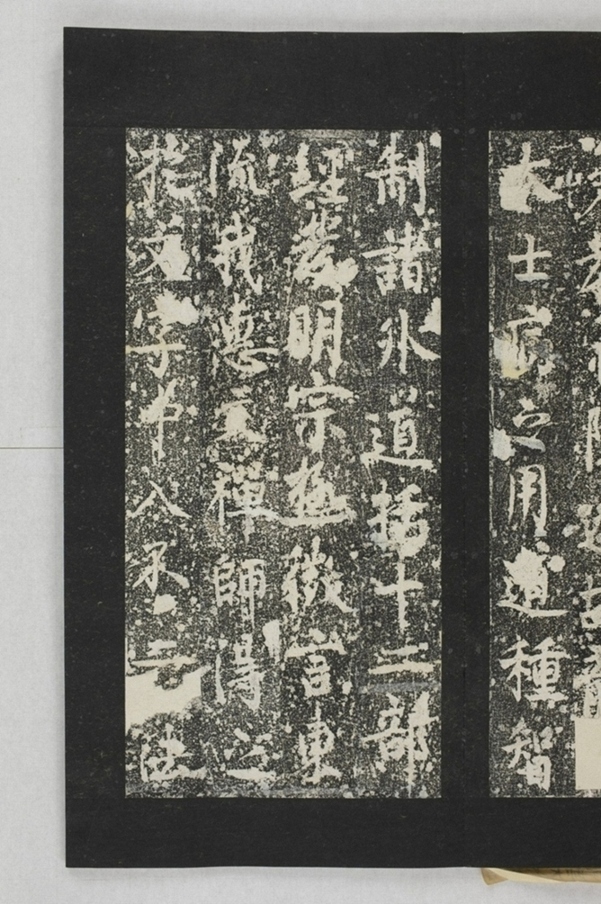 大士病之用道種智
制諸外道括十二部
經發明宗極微言東
流我惠文禪師得之
於文字中入不二法